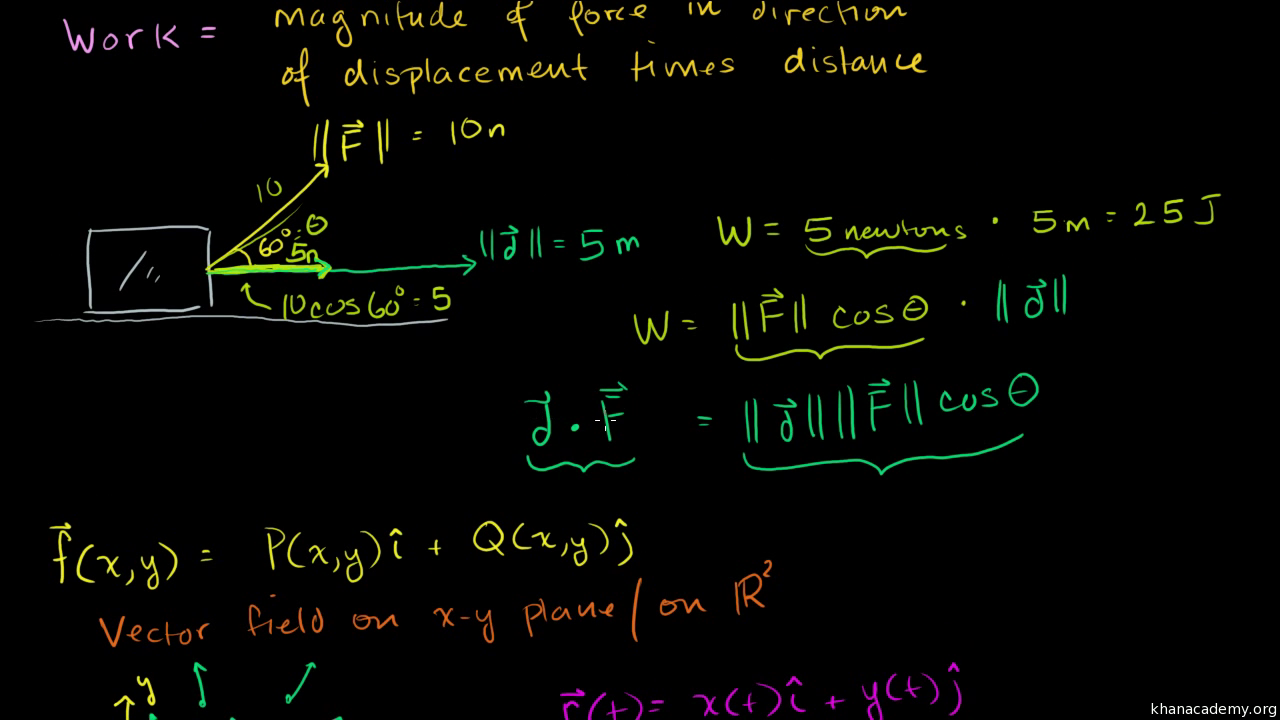 Work = magnitude of force in direction
of displacement times distance
||F⃗|| = 10n
10
θ
60° 5n
||d⃗|| = 5m
10cos60° = 5
W = 5 newtons · 5m = 25 J
W = ||F⃗|| cosθ · ||d⃗||
d⃗ · F⃗ = ||d⃗|| ||F⃗|| cosθ
f⃗(x,y) = P(x,y)î + Q(x,y)ĵ
Vector field on x-y plane / on ℝ²
y
r⃗(t) = x(t)î + y(t)ĵ
khanacademy.org